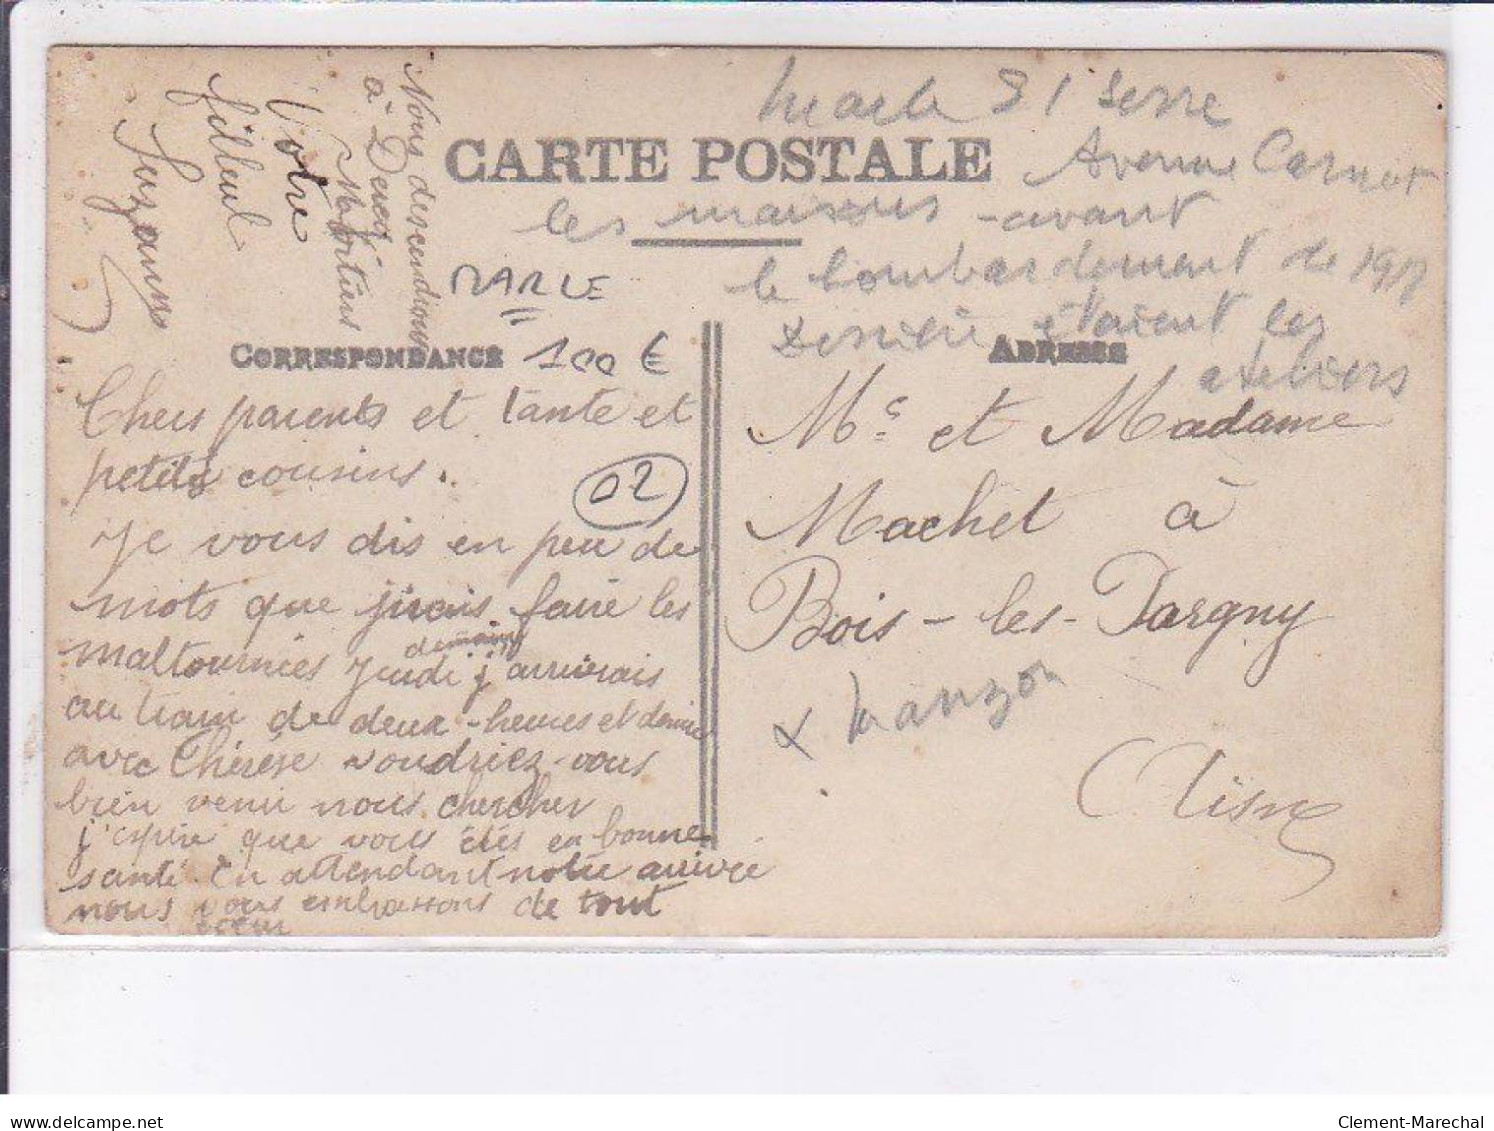 Nous descendrons
à Dercy
Mortiers
Votre
filleul
Suzanne
CARTE POSTALE
Marle s/ Serre
Avenue Carnot
les maisons avant
le bombardement de 1918
Derrière étaient les
ateliers
MARLE
100 €
02
CORRESPONDANCE
Chers parents et tante et
petits cousins.
Je vous dis en peu de
mots que j'irais faire les
maltournées Jeudi demain j'arriverais
au train de deux-heures et demie
avec Thérèse voudriez-vous
bien venir nous chercher
j'espère que vous êtes en bonne
santé. En attendant notre arrivée
nous vous embrassons de tout
cœur
ADRESSE
Mr et Madame
Machet à
Bois-les-Pargny
x Manzon
Aisne
delcampe.net
Clement-Marechal